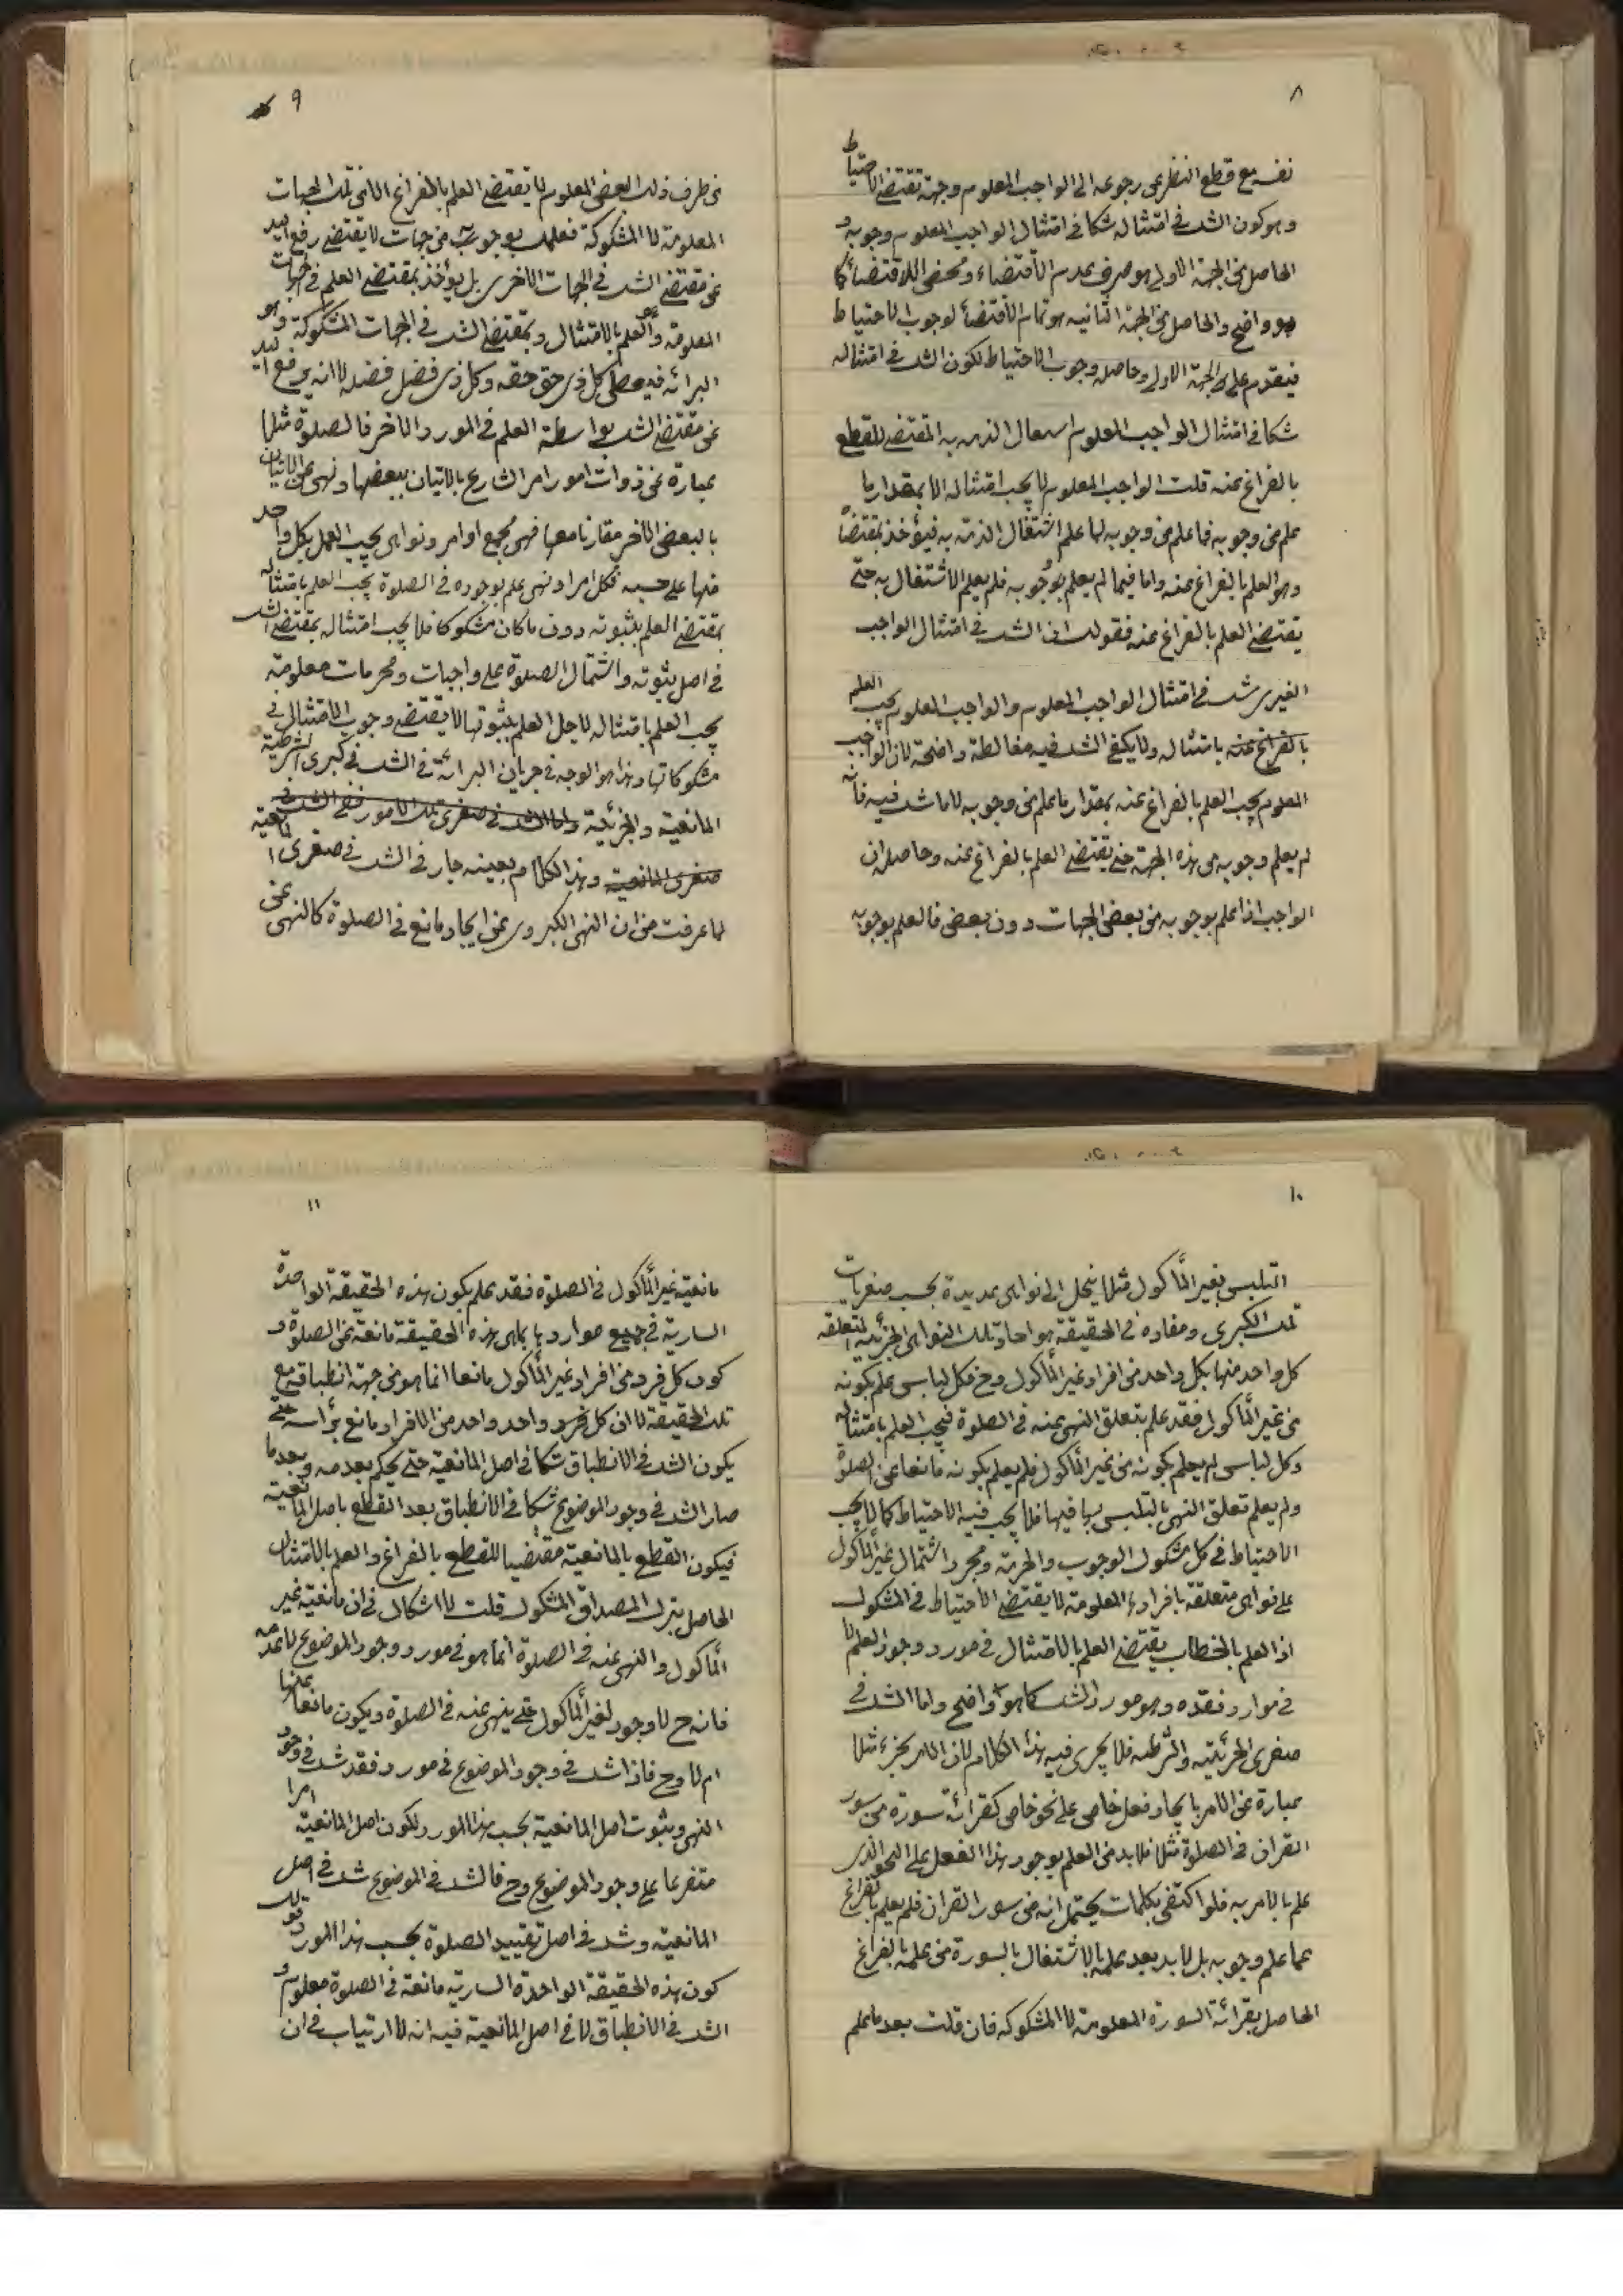 ٨
نفسه مع قطع النظر عن رجوعه الى الواجب المعلوم وجهة تقتضى الاحتياط
وهو كون الشك فى امتثاله شكا فى امتثال الواجب المعلوم وجوبه و
الحاصل من الجهة الاولى هو صرف عدم الاقتضاء ومحض اللااقتضاء كما
هو واضح والحاصل من الجهة الثانيه هو تمام الاقتضاء لوجوب الاحتياط
فيقدم على الجهة الاولى وحاصله وجوب الاحتياط لكون الشك فى امتثاله
شكا فى امتثال الواجب المعلوم اشتغال الذمه به المقتضى للقطع
بالفراغ عنه قلت الواجب المعلوم لا يجب امتثاله الا بمقدار ما
علم من وجوبه فما علم من وجوبه لما علم اشتغال الذمة به فيؤخذ بمقتضاه
وهو العلم بالفراغ عنه واما فيما لم يعلم بوجوبه فلم يعلم الاشتغال به حتى
يقتضى العلم بالفراغ عنه فقولك ان الشك فى امتثال الواجب
الغيرى شك فى امتثال الواجب المعلوم والواجب المعلوم يجب العلم
بالفراغ عنه بامتثاله ولا يكفى الشك فيه مغالطة واضحة لان الواجب
المعلوم يجب العلم بالفراغ عنه بمقدار ما علم من وجوبه لا ما شك فيه فانه
لم يعلم وجوبه من هذه الجهة حتى يقتضى العلم بالفراغ عنه وحاصله ان
الواجب اذا علم بوجوبه من بعض الجهات دون بعض فالعلم بوجوبه
٩
من طرف ذلك البعض المعلوم لا يقتضى العلم بالفراغ الا من تلك الجهات
المعلومة لا المشكوكة فعلمك بوجوبه من جهات لا يقتضى رفع اليد
عن مقتضى الشك فى الجهات الاخرى بل يؤخذ بمقتضى العلم فى الجهات
المعلومة وهو العلم بالامتثال وبمقتضى الشك فى الجهات المشكوكة وهو
البرائه فيعطى كل ذى حق حقه وكل ذى فضل فضله لا انه يرفع اليد
عن مقتضى الشك بواسطة العلم فى المورد الاخر فالصلوة مثلا
عبارة عن ذوات امور امر الشارع بالاتيان ببعضها ونهى عن الاتيان
بالبعض الاخر مقارنا معها فهى مجمع اوامر ونواهى يجب العمل بكل واحد
منها على حسبه فكل امر او نهى علم بوجوده فى الصلوة يجب العلم بامتثاله
بمقتضى العلم بثبوته دون ما كان مشكوكا فلا يجب امتثاله بمقتضى الشك
فى اصل ثبوته واشتمال الصلوة على واجبات ومحرمات معلومة
يجب العلم بامتثاله لاجل العلم بثبوتها لا يقتضى وجوب الامتثال فى
مشكوكاتها وهذا هو الوجه فى جريان البرائة فى الشك فى كبرى الشرطية
المانعية والجزئية واما الشك فى صغرى تلك الامور ففى الشك فى
صغرى المانعية وهذا الكلام بعينه جار فى الشك فى صغرى المانعية
لما عرفت من ان النهى الكبروى عن ايجاد مانع فى الصلوة كالنهى عن
١٠
التلبس بغير المأكول مثلا ينحل الى نواهى عديدة بحسب صغريات
تلك الكبرى ومفاده فى الحقيقة هو احاد تلك النواهى الجزئية المتعلقه
كل واحد منها بكل واحد من افراد غير المأكول وح فكل لباس علم بكونه
من غير المأكول فقد علم بتعلق النهى عنه فى الصلوة فيجب العلم بامتثاله
وكل لباس لم يعلم بكونه من غير المأكول فلم يعلم بكونه مانعا عن الصلوة
ولم يعلم تعلق النهى بالتلبس بها فيها فلا يجب فيه الاحتياط كما لا يجب
الاحتياط فى كل مشكوك الوجوب والحرمة ومجرد اشتمال غير المأكول
على نواهى متعلقة بافراده المعلومة لا يقتضى الاحتياط فى المشكوك
اذ العلم بالخطاب يقتضى العلم بالامتثال فى مورد وجود العلم لا
فى موارد فقده وهو مورد الشك كما هو واضح واما الشك فى
صغرى الجزئيه والشرطيه فلا يجرى فيه هذا الكلام لان الامر بجزء مثلا
عبارة عن الامر بايجاد فعل خاص على نحو خاص كقرائة سورة من سور
القران فى الصلوة مثلا فلابد من العلم بوجود هذا الفعل على النحو الذى
علم بالامر به فلو اكتفى بكلمات يحتمل انه من سور القران فلم يعلم بالفراغ
عما علم وجوبه بل لابد بعد علمه بالاشتغال بالسورة من علمه بالفراغ
الحاصل بقرائة السورة المعلومة لا المشكوكه فان قلت بعد ما علم
١١
مانعية غير المأكول فى الصلوة فقد علم بكون هذه الحقيقة الواحدة
السارية فى جميع مواردها بما هى هذه الحقيقة مانعة عن الصلوة و
كون كل فرد من افراد غير المأكول مانعا انما هو من جهة انطباقه مع
تلك الحقيقة لا ان كل فرد واحد واحد من الافراد مانع برأسه حتى
يكون الشك فى الانطباق شكا فى اصل المانعية حتى يحكم بعدمه وبعد ما
صار الشك فى وجود الموضوع شكا فى الانطباق بعد القطع باصل المانعية
فيكون القطع بالمانعية مقتضيا للقطع بالفراغ والعلم بالامتثال
الحاصل بترك المصداق المشكوك قلت لا اشكال فى ان مانعية غير
المأكول والنهى عنه فى الصلوة انما هو فى مورد وجود الموضوع لا عدمه
فانه ح لا وجود لغير المأكول حتى ينهى عنه فى الصلوة ويكون مانعا عنها
ام لا وح فاذا شك فى وجود الموضوع فى مورد فقد شك فى وجود
النهى وثبوت اصل المانعية بحسب هذا المورد لكون اصل المانعية امرا
متفرعا على وجود الموضوع وح فالشك فى الموضوع شك فى اصل
المانعيه وشك فى اصل تقييد الصلوة بحسب هذا المورد قولك
كون هذه الحقيقة الواحدة الساريه مانعة فى الصلوة معلوم و
الشك فى الانطباق لا فى اصل المانعية فيه انه لا ارتياب فى ان